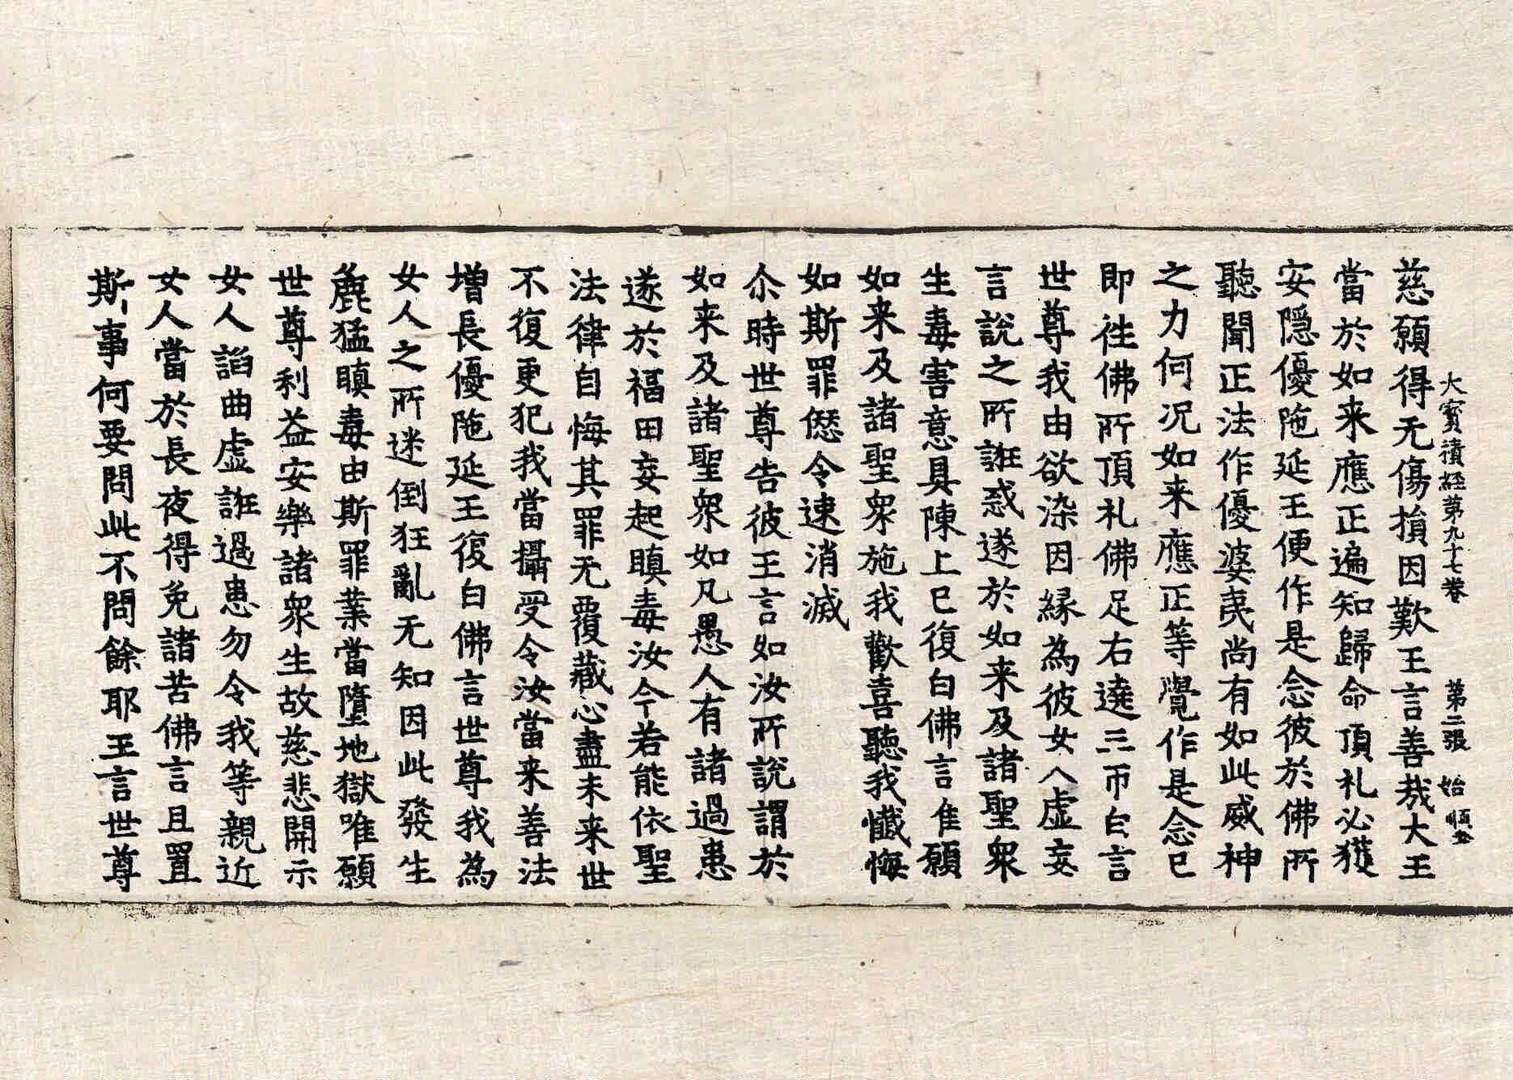 大寳積経第九十七卷　第二張　始
慈願得无傷損因歎王言善㢤大王
當於如来應正遍知歸命頂礼必獲
安隱優陁延王便作是念彼於佛所
聽聞正法作優婆夷尚有如此威神
之力何况如来應正等覺作是念已
即往佛所頂礼佛足右遶三帀白言
世尊我由欲染因緣為彼女人虛妄
言說之所誑惑遂於如来及諸聖衆
生毒害意具陳上已復白佛言唯願
如来及諸聖衆施我歡喜聽我懺悔
如斯罪㥯令速消滅
尒時世尊告彼王言如汝所說謂於
如来及諸聖衆如凡愚人有諸過患
遂於福田妄起瞋毒汝今若能依聖
法律自悔其罪无覆藏心盡未来世
不復更犯我當攝受令汝當来善法
增長優陁延王復白佛言世尊我為
女人之所迷倒狂亂无知因此發生
麁猛瞋毒由斯罪業當墮地獄唯願
世尊利益安樂諸衆生故慈悲開示
女人諂曲虛誑過患勿令我等親近
女人當於長夜得免諸苦佛言且置
斯事何要問此不問餘耶王言世尊